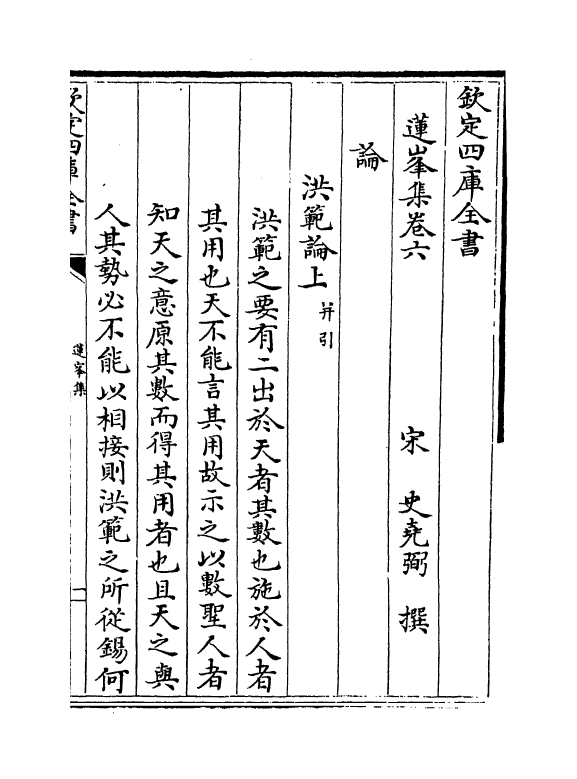 欽定四庫全書
蓮峯集卷六
宋 史堯弼 撰
論
洪範論上 并引
洪範之要有二出於天者其數也施於人者
其用也天不能言其用故示之以數聖人者
知天之意原其數而得其用者也且天之與
人其勢必不能以相接則洪範之所從錫何
欽定四庫全書
蓮峯集
一